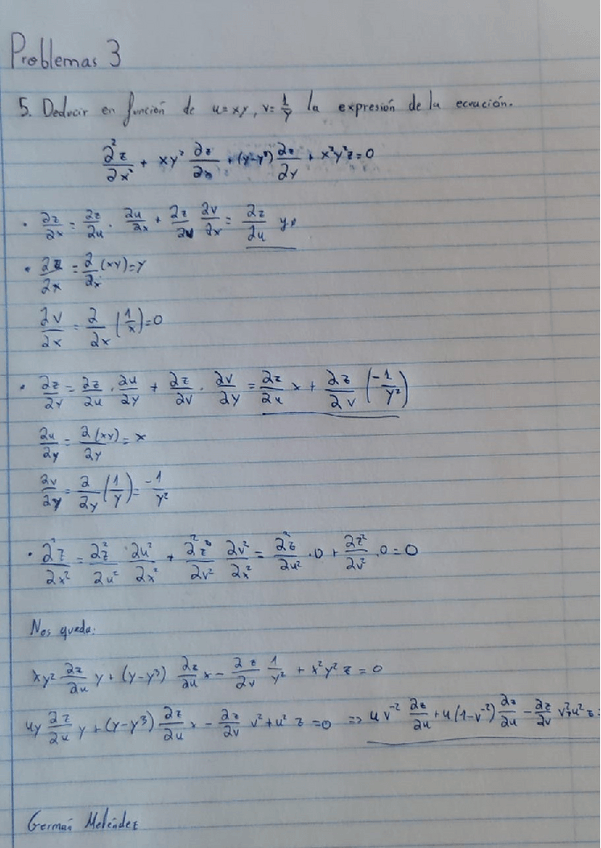 Problemas 3
5. Deducir en función de u=xy, v=1/y la expresión de la ecuación.
∂²z/∂x² + xy² ∂z/∂x + (y-y³) ∂z/∂y + x²y²z=0
• ∂z/∂x = ∂z/∂u · ∂u/∂x + ∂z/∂v ∂v/∂x = ∂z/∂u y
• ∂z/∂x = ∂/∂x (xy)=y
∂v/∂x = ∂/∂x (1/x)=0
• ∂z/∂y = ∂z/∂u · ∂u/∂y + ∂z/∂v · ∂v/∂y = ∂z/∂u x + ∂z/∂v (-1/y²)
∂u/∂y = ∂(xy)/∂y = x
∂v/∂y = ∂/∂y (1/y) = -1/y²
• ∂²z/∂x² = ∂z²/∂u² · ∂u²/∂x² + ∂²z²/∂v² ∂v²/∂x² = ∂²z/∂u² · 0 + ∂z²/∂v² · 0 = 0
Nos queda:
xy² ∂z/∂u y + (y-y³) ∂z/∂u x - ∂z/∂v 1/y² + x²y² z = 0
uy ∂z/∂u y + (y-y³) ∂z/∂u x - ∂z/∂v v² + u² z = 0 => u v⁻² ∂z/∂u + u(1-v⁻²) ∂z/∂u - ∂z/∂v v² + u² z =
Germán Meléndez